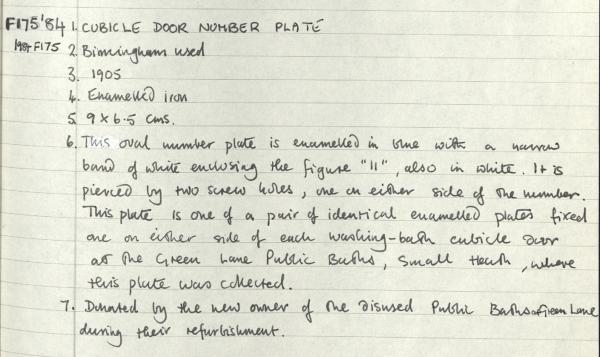 F175'84 1. CUBICLE DOOR NUMBER PLATE
1984F175 2. Birmingham used
3. 1905
4. Enamelled iron
5. 9 x 6.5 cms.
6. This oval number plate is enamelled in blue with a narrow
band of white enclosing the figure "11", also in white. It is
pierced by two screw holes, one on either side of the number.
This plate is one of a pair of identical enamelled plates fixed
one on either side of each washing-bath cubicle door
at the Green Lane Public Baths, Small Heath, where
this plate was collected.
7. Donated by the new owner of the disused Public Baths at Green Lane
during their refurbishment.